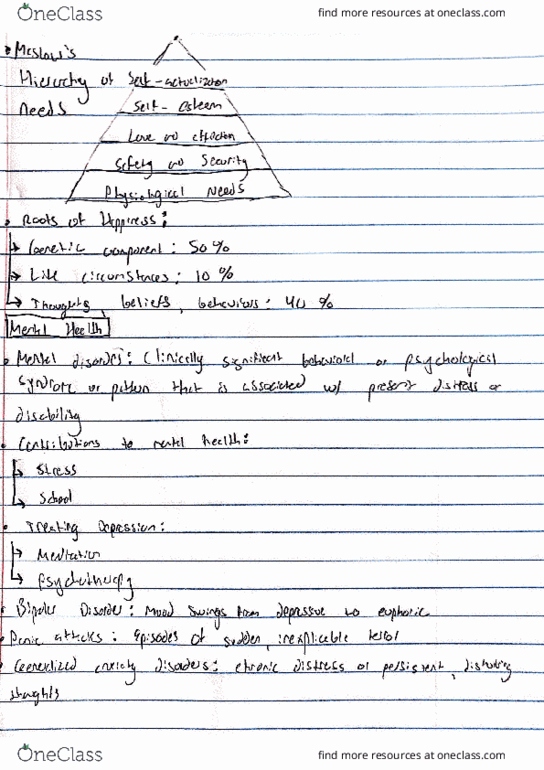 OneClass
find more resources at oneclass.com
Maslow's
Hierarchy of
Needs
Self-actualization
Self-esteem
Love and affection
Safety and Security
Physiological Needs
Roots of Happiness:
Genetic component: 50%
Life circumstances: 10%
Thoughts, beliefs, behaviors: 40%
Mental Health
Mental disorder: Clinically significant behavioral or psychological
syndrome or pattern that is associated w/ present distress or
disability
Contributions to mental health:
Stress
School
Treating Depression:
Meditation
Psychotherapy
Bipolar Disorder: Mood swings from depressive to euphoric
Panic attacks: Episodes of sudden, inexplicable terror
Generalized anxiety disorders: chronic distress or persistent, disturbing
thoughts
OneClass
find more resources at oneclass.com